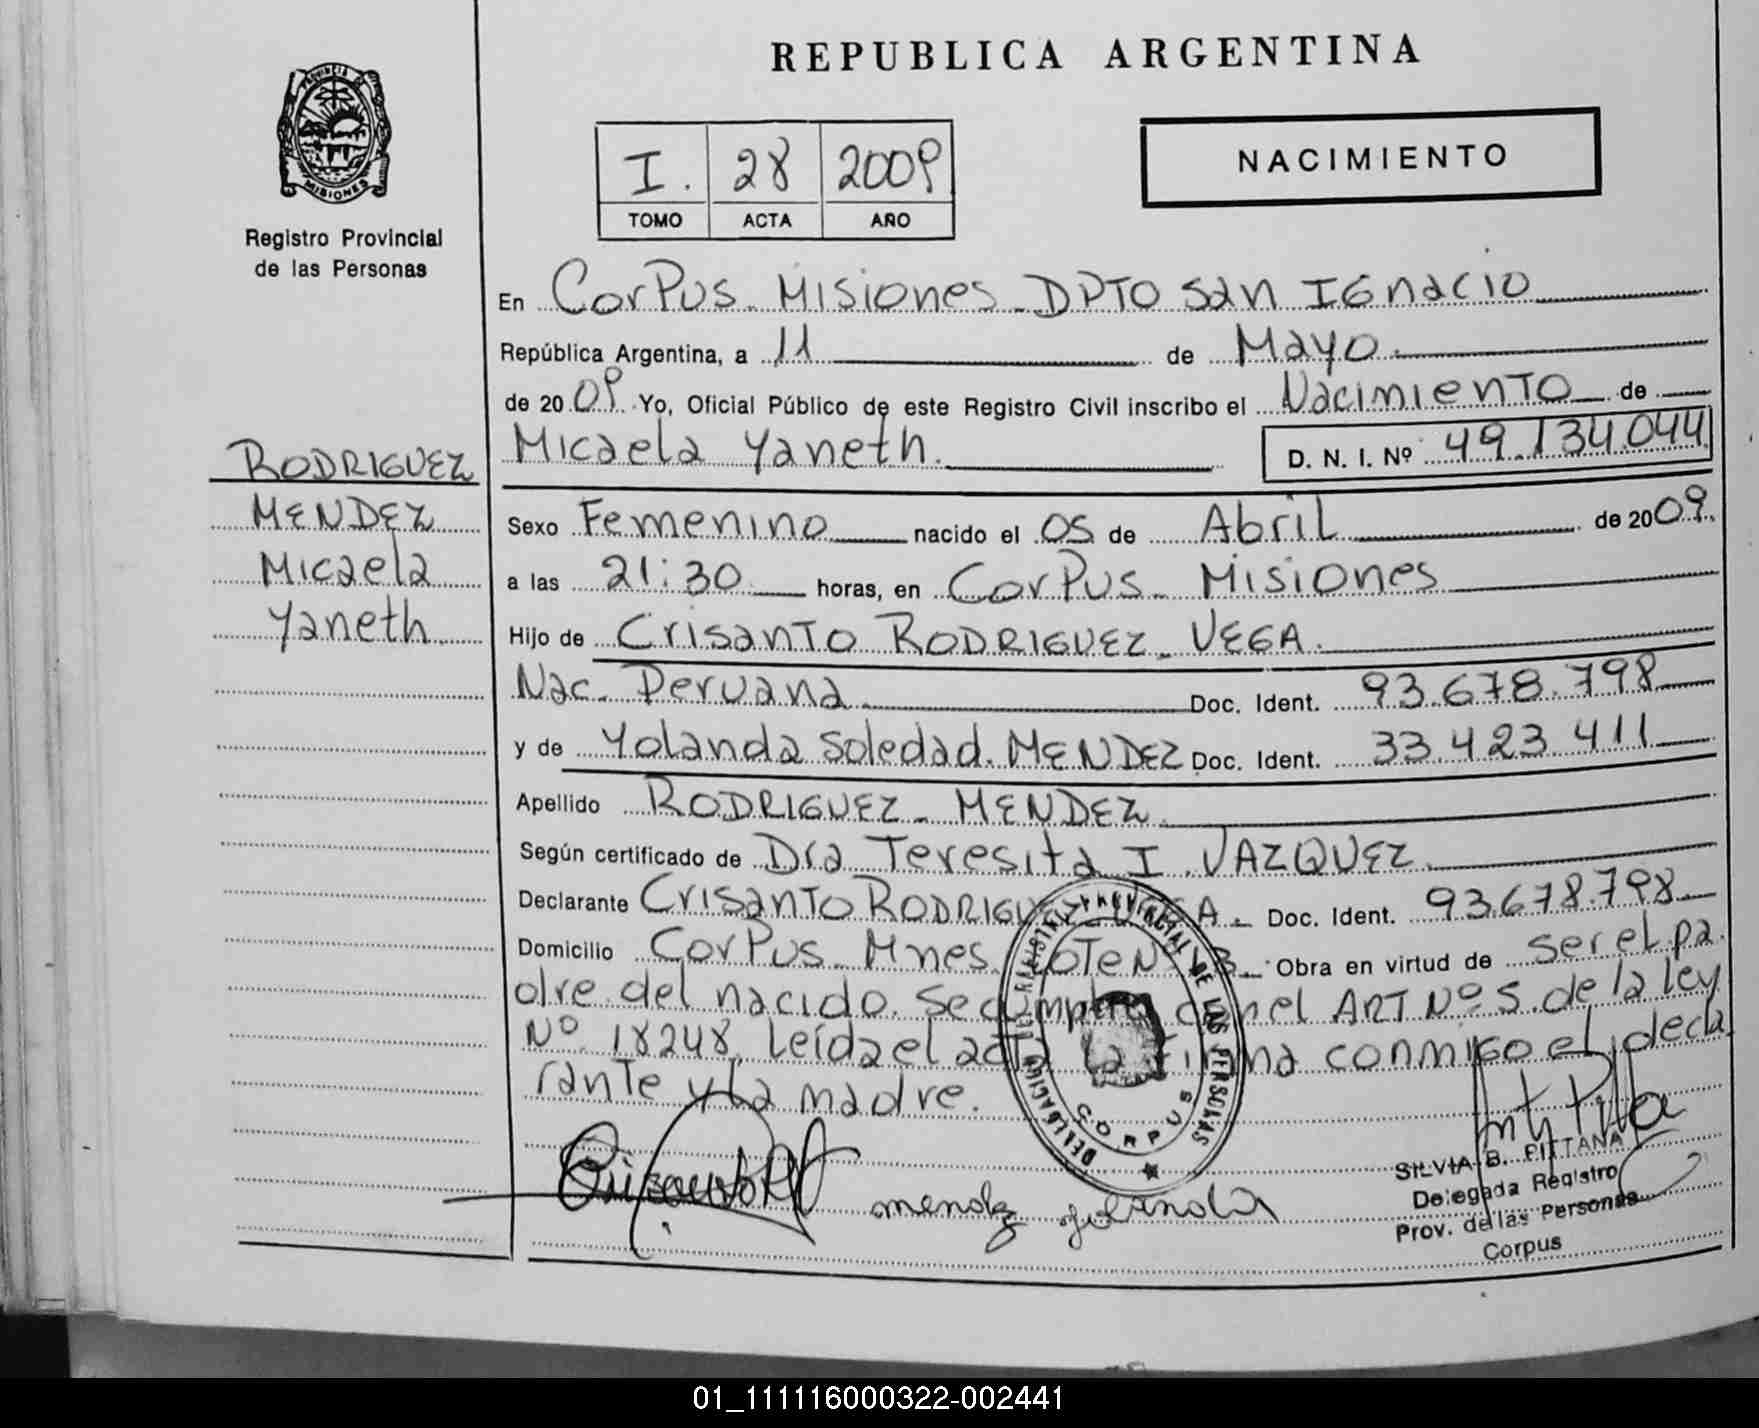 REPUBLICA ARGENTINA
PROVINCIA DE
MISIONES
Registro Provincial
de las Personas
I. 28 2009
TOMO ACTA AÑO
NACIMIENTO
En Corpus - Misiones - DPTO San Ignacio
República Argentina, a 11 de Mayo
de 2009. Yo, Oficial Público de este Registro Civil inscribo el Nacimiento de
Micaela Yaneth. D. N. I. Nº 49.134.044
RODRIGUEZ
MENDEZ
Micaela
Yaneth.
Sexo Femenino nacido el 05 de Abril de 2009.
a las 21:30 horas, en Corpus - Misiones
Hijo de Crisanto RODRIGUEZ - VEGA.
Nac. Peruana Doc. Ident. 93.678.798
y de Yolanda Soledad. MENDEZ Doc. Ident. 33.423.411
Apellido RODRIGUEZ - MENDEZ.
Según certificado de Dra Teresita I. VAZQUEZ.
Declarante Crisanto RODRIGUEZ VEGA. Doc. Ident. 93.678.798
Domicilio Corpus - Mnes. Lote Nº Obra en virtud de ser el pa
dre del nacido. Se cumple con el ART Nº 5. de la ley
Nº 18248, Leída el acta la firma conmigo el decla
rante y la madre.
DELEGACION DEL REGISTRO PROVINCIAL DE LAS PERSONAS
CORPUS
mendez yolanda
SILVIA B. PITTANA
Delegada Registro
Prov. de las Personas
Corpus
01_111116000322-002441